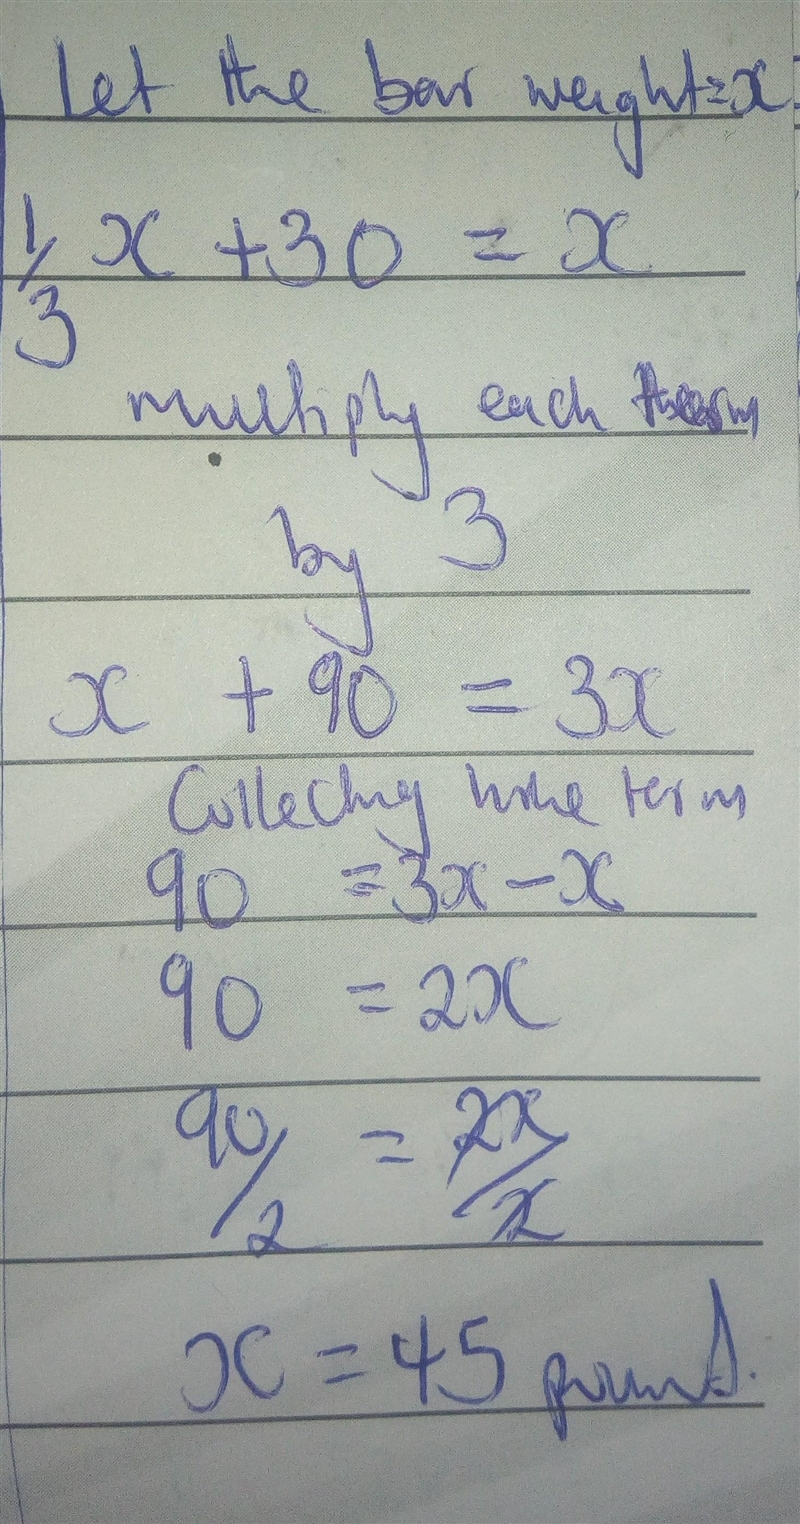 Let the bar weight=x
1/3 x + 30 = x
multiply each therm
by 3
x + 90 = 3x
Collecting like term
90 = 3x - x
90 = 2x
90/2 = 2x/2
x = 45 pound.